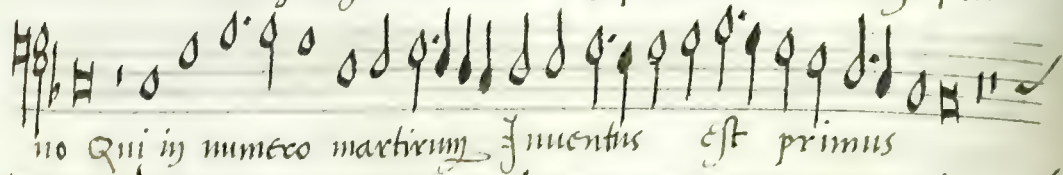 no Qui in numero martirum Inuentus est primus